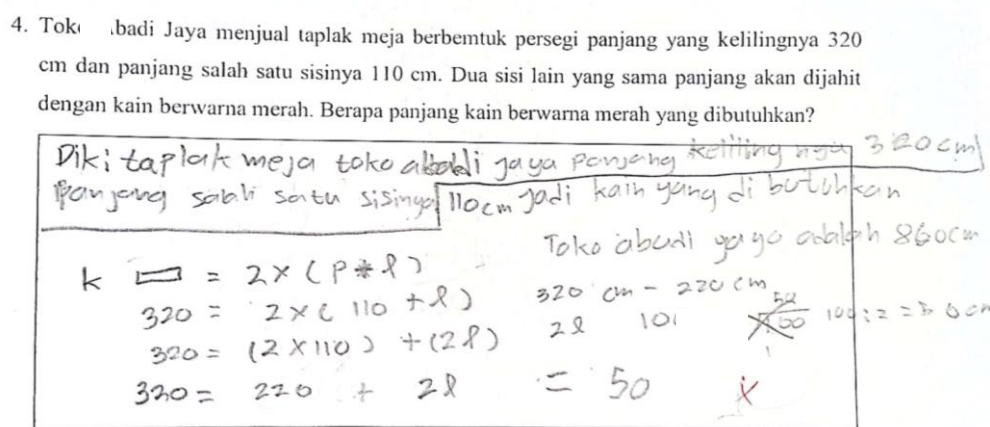 4. Tok .badi Jaya menjual taplak meja berbemtuk persegi panjang yang kelilingnya 320
cm dan panjang salah satu sisinya 110 cm. Dua sisi lain yang sama panjang akan dijahit
dengan kain berwarna merah. Berapa panjang kain berwarna merah yang dibutuhkan?
Diki taplak meja toko jaya panjang keliling nya 320 cm
panjang salah satu sisinya 110 cm Jadi kain yang di butuhkan
Toko abadi yaya adalah 860 cm
k ▭ = 2 × ( P + l )
320 = 2 × ( 110 + l )
320 = (2 × 110 ) + (2 l )
320 = 220 + 2 l
320 cm - 220 cm
2 l 10 100 : 2 = 50 cm
= 50